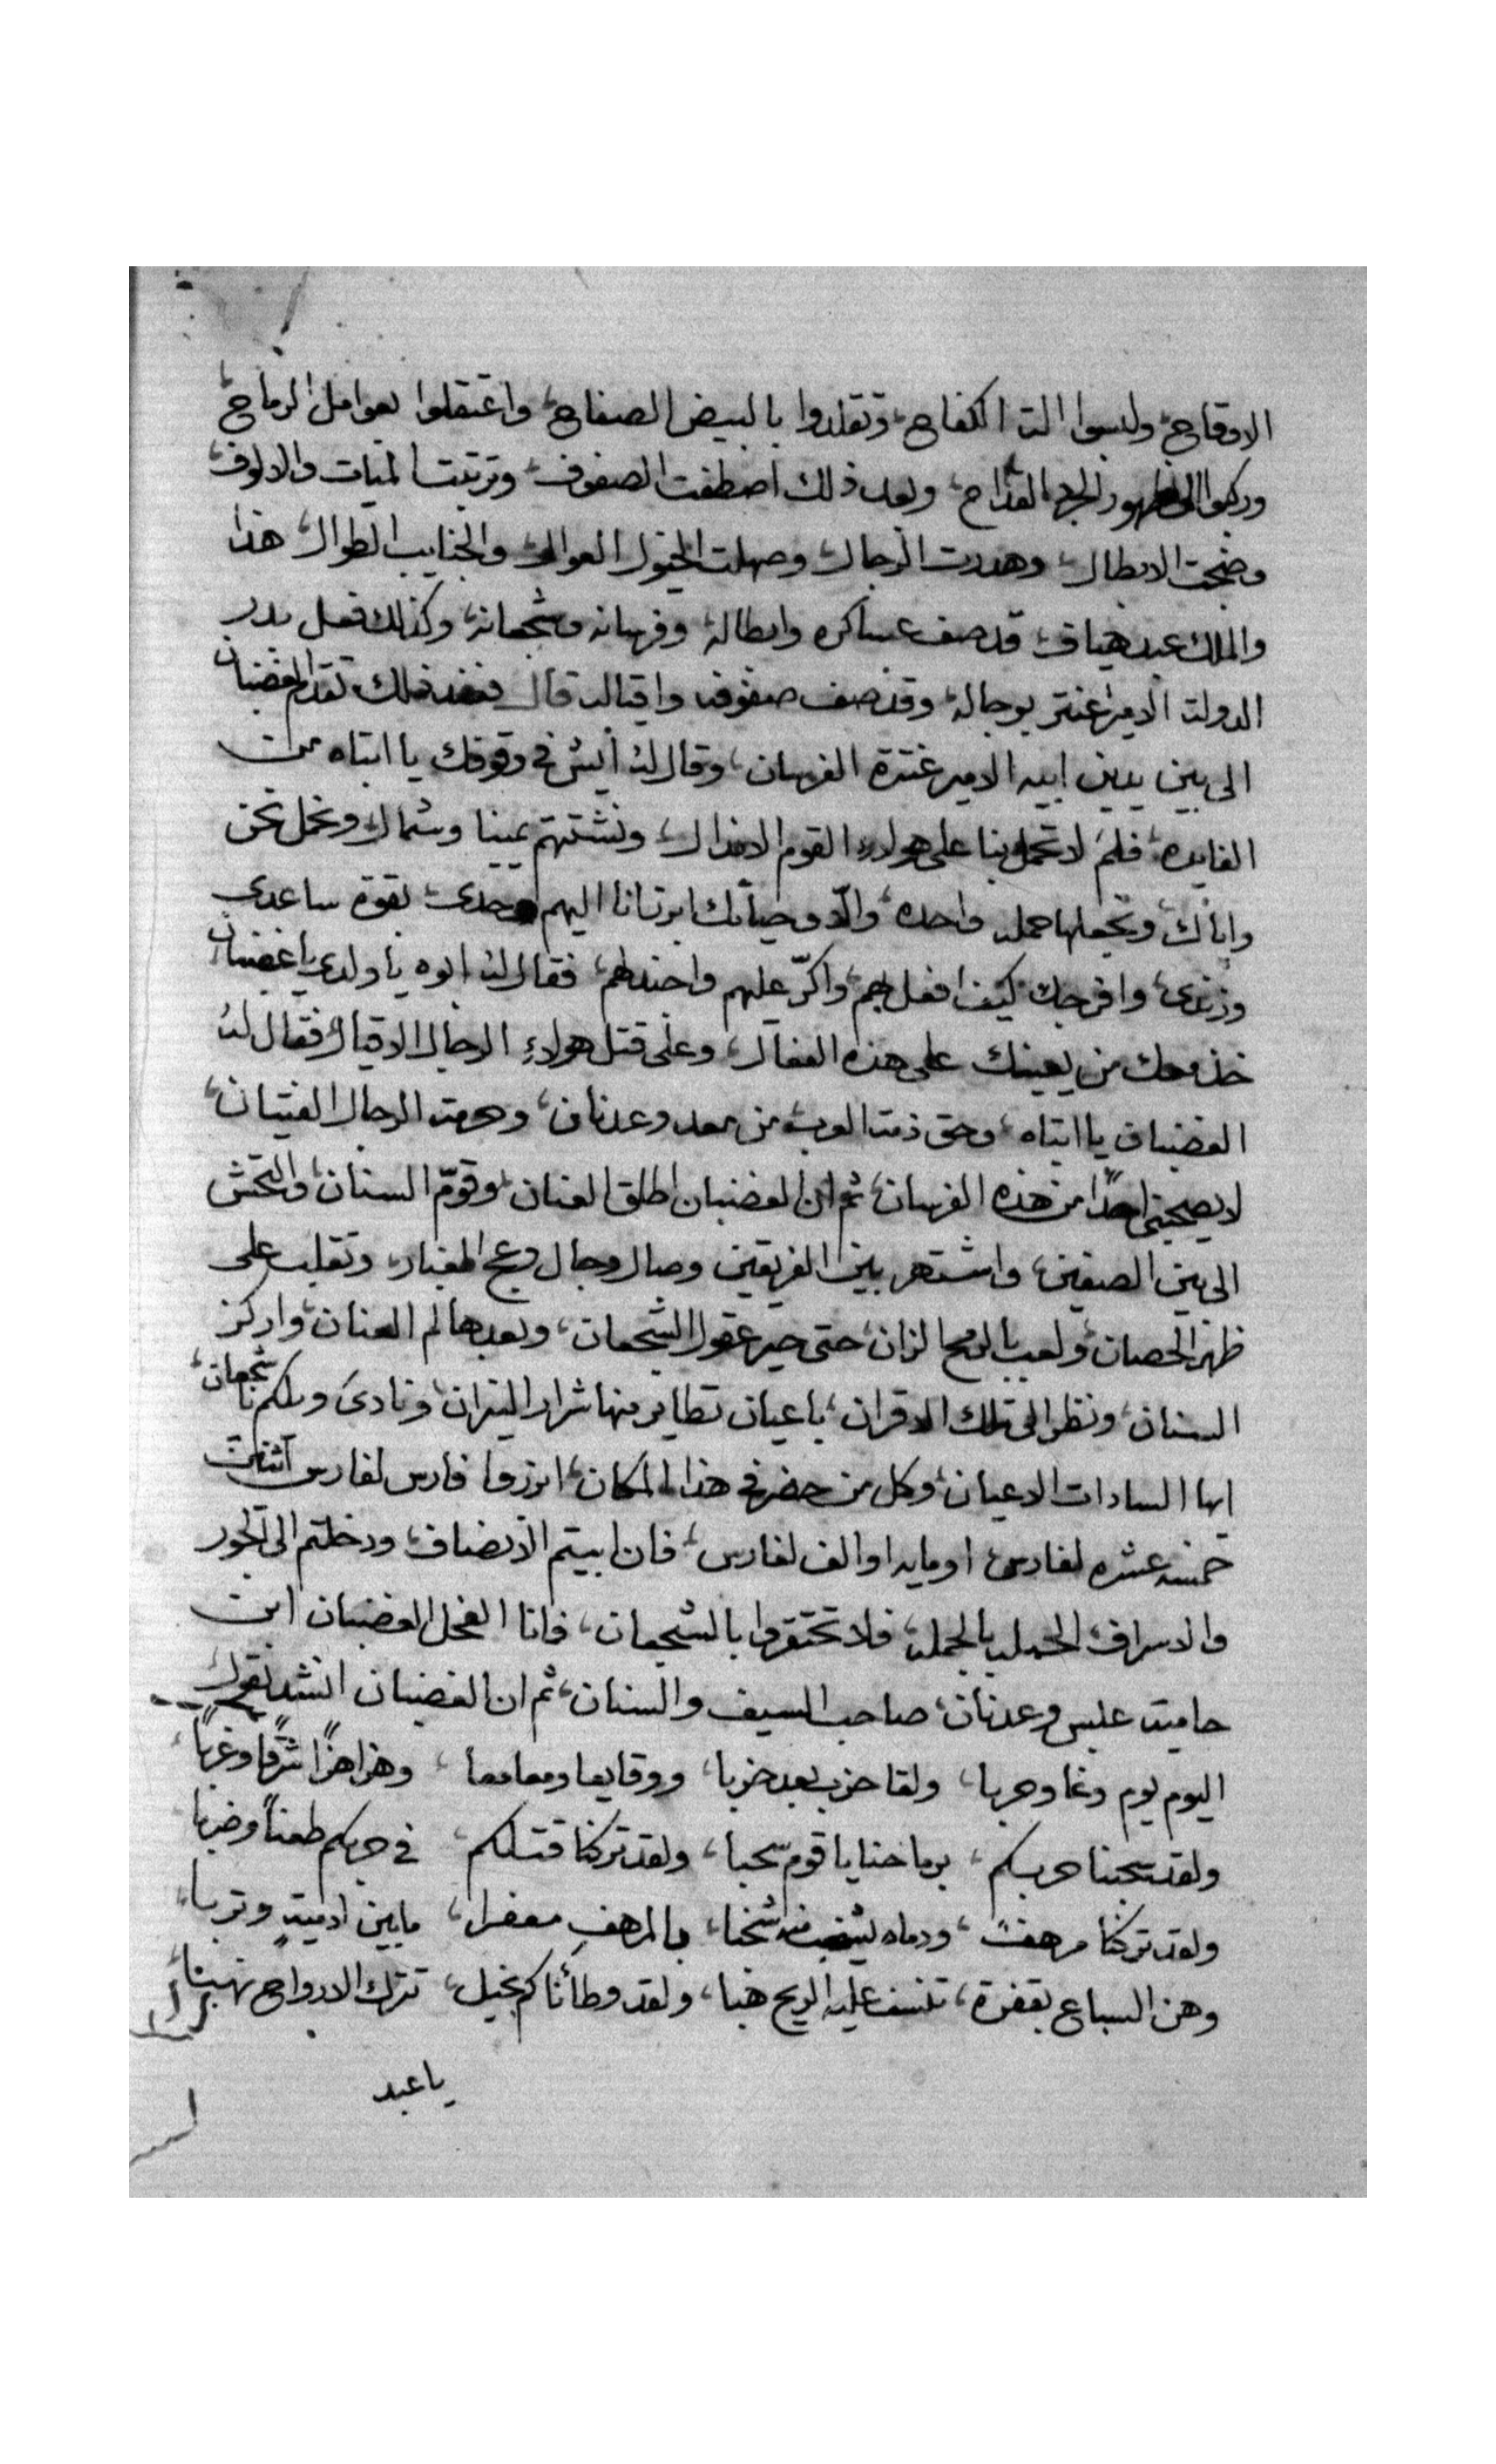 الاوقاح، ولبسوا الت الكفاح، وتقلدوا بالبيض الصفاح، واعتقلوا بعوامل الرماح،
وركبوا الى ظهور الجرد القداح، وبعد ذلك اصطفت الصفوف، وترتبت الميات والالوف،
وضجت الابطال، وهدرت الرجال، وصهلت الخيول العوال، والجنايب الطوال، هذا
والملك عبد هياف، قد صف عساكره وابطاله، وفرسانه وشجعانه، وكذلك فعل بدر
الدولت الامير عنتر بوجاله، وقد صف صفوفه واقياله قال فعند ذلك تقدم الغضبان
الى بين يدين ابيه الامير عنترة الفرسان، وقال له أيش في وقوفك يا ابتاه من
الفايده، فلم لا تحمل بنا على هولاء القوم الانذال، ونشتتهم يمينا وشمال، ونحمل نحن
واياك، ونجعلها حمله واحده، والّا وحياتك ابرتانا اليهم وحدي، بقوة ساعدي
وزندي، وافرجك كيف افعل بهم، واكرّ عليهم واجندلهم، فقال له ابوه يا ولدي يا غضبان
خذ معك من يعينك على هذه الفعال، وعلى قتل هولاء الرجال الاقيال، فقال له
الغضبان يا ابتاه، وحق ذمت العرب، من معد وعدنان، وحرمت الرجال الفتيان،
لا يصحبني احدًا من هذه الفرسان، ثم ان الغضبان اطلق العنان، وقوّم السنان، والتحش
الى بين الصفين، واشتهر بين الفريقين وصال وجال وعج الغبار، وتقلب على
ظهر الحصان، ولعب بالرمح الزان، حتى حير عقول الشجعان، وبعدها لم العنان، واركز
السنان، ونظر الى تلك الاقران، باعيان تطاير منها شرار النيران، ونادى ويلكم يا شجعان،
ايها السادات الاعيان، وكل من حضر في هذا المكان، ابرزوا فارس لفارس اثنين
خمسه عشره لفارس، او مايه او الف لفارس، فان ابيتم الانصاف، ودخلتم الى الجور
والاسراف، الحمله بالجمله، فلا تحتقروا بالشجعان، فانا الفحل الغضبان ابن
حاميت عبس وعدنان، صاحب السيف والسنان، ثم ان الغضبان انشد يقول
اليوم يوم وغا وحربا، ولقا حزب بعد حزبا، ووقايعا ومعامعا، وهزاهزًا شرقًا وغربًا،
ولقد سحبنا حربكم، برماحنا يا قوم سحبا، ولقد تركنا قتلكم، في حربكم طعنًا وضربا
ولقد تركنا مرهفت، ودماه شخبا، بالمرهف معفرا، مابين ادميتٍ وتربا،
وهن السباع بقفرة، تنسف عليه الريح هبا، ولقد وطأناكم بخيل، تترك الارواح نهبنا،
يا عبد